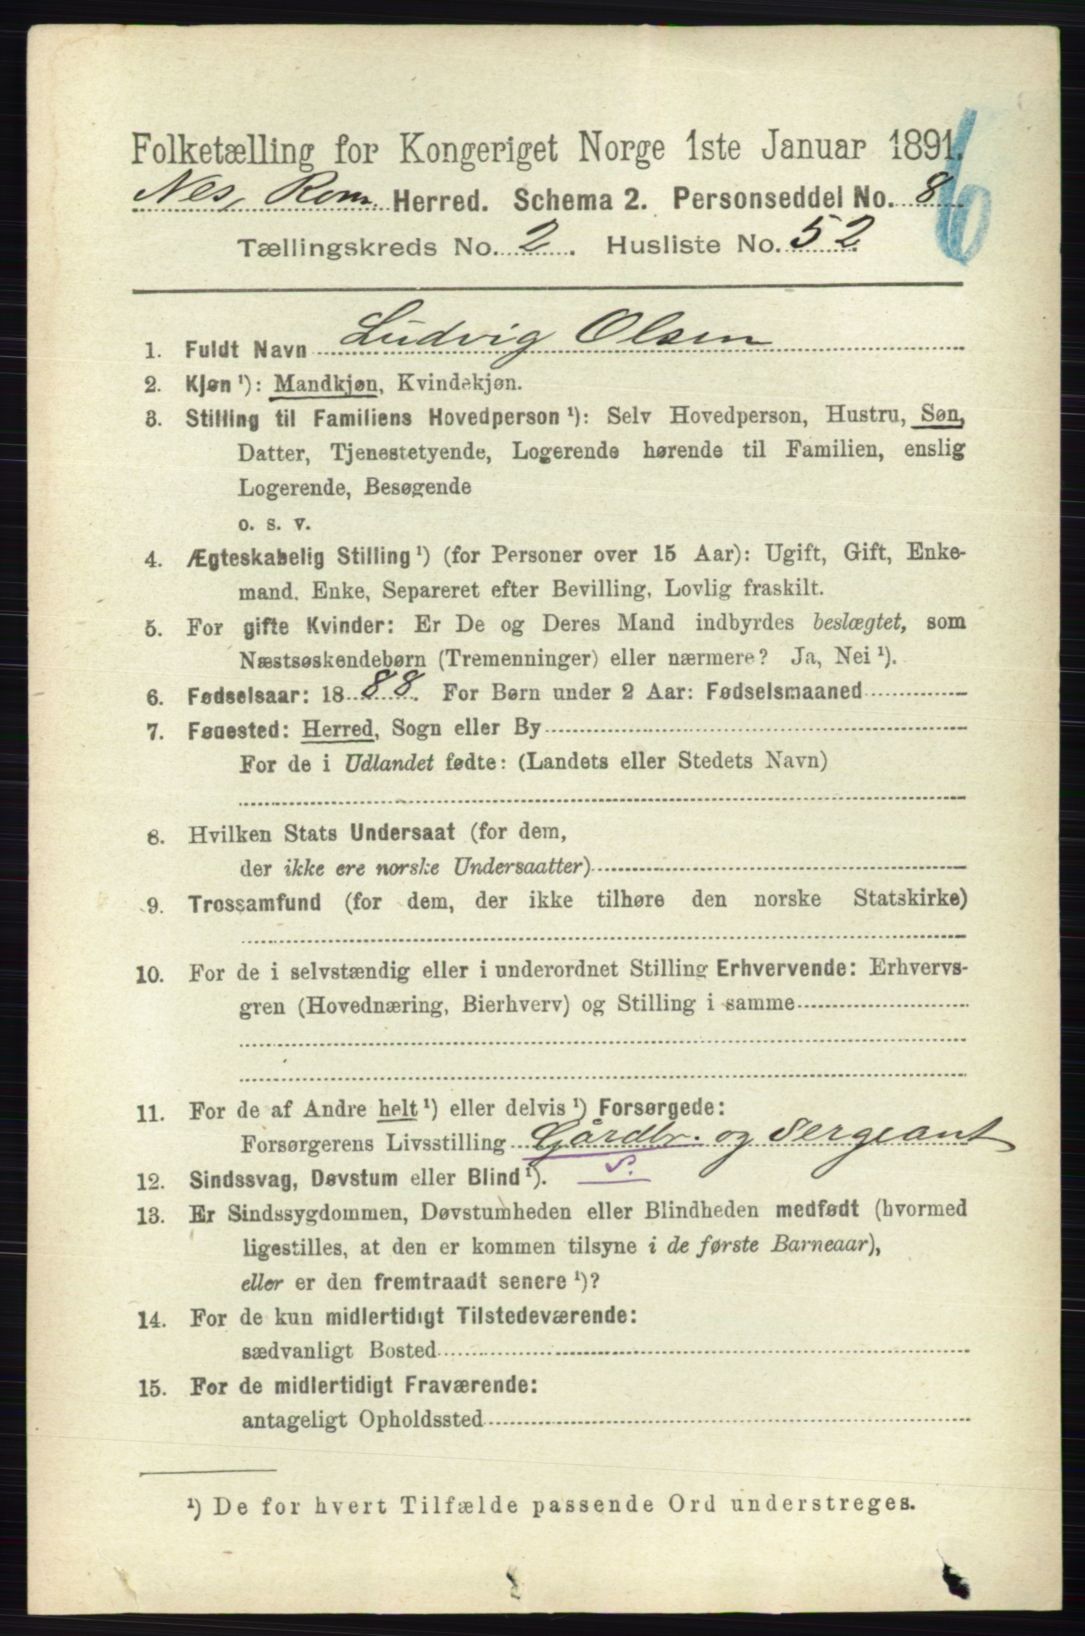 Folketælling for Kongeriget Norge 1ste Januar 1891.
6
Nes, Rom. Herred. Schema 2. Personseddel No. 8
Tællingskreds No. 2. Husliste No. 52
1. Fuldt Navn Ludvig Olsen
2. Kjøn¹): Mandkjøn, Kvindekjøn.
3. Stilling til Familiens Hovedperson¹): Selv Hovedperson, Hustru, Søn,
Datter, Tjenestetyende, Logerende hørende til Familien, enslig
Logerende, Besøgende
o. s. v.
4. Ægteskabelig Stilling¹) (for Personer over 15 Aar): Ugift, Gift, Enke-
mand, Enke, Separeret efter Bevilling, Lovlig fraskilt.
5. For gifte Kvinder: Er De og Deres Mand indbyrdes beslægtet, som
Næstsøskendebørn (Tremenninger) eller nærmere? Ja, Nei¹).
6. Fødselsaar: 1888. For Børn under 2 Aar: Fødselsmaaned
7. Fødested: Herred, Sogn eller By
For de i Udlandet fødte: (Landets eller Stedets Navn)
8. Hvilken Stats Undersaat (for dem,
der ikke ere norske Undersaatter)
9. Trossamfund (for dem, der ikke tilhøre den norske Statskirke)
10. For de i selvstændig eller i underordnet Stilling Erhvervende: Erhvervs-
gren (Hovednæring, Bierhverv) og Stilling i samme
11. For de af Andre helt¹) eller delvis¹) Forsørgede:
Forsørgerens Livsstilling Gårdbr. og Sergeant
S.
12. Sindssvag, Døvstum eller Blind¹).
13. Er Sindssygdommen, Døvstumheden eller Blindheden medfødt (hvormed
ligestilles, at den er kommen tilsyne i de første Barneaar),
eller er den fremtraadt senere¹)?
14. For de kun midlertidigt Tilstedeværende:
sædvanligt Bosted
15. For de midlertidigt Fraværende:
antageligt Opholdssted
¹) De for hvert Tilfælde passende Ord understreges.